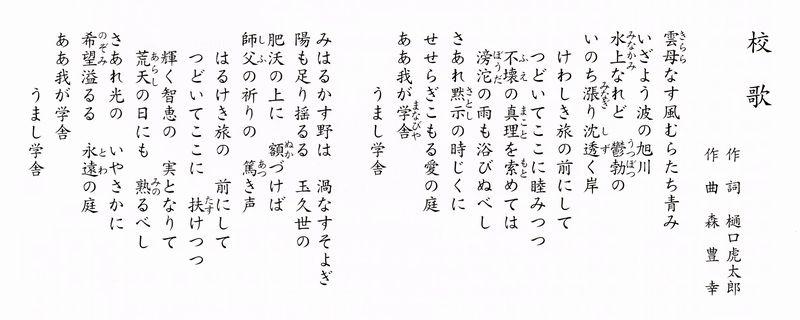 校歌
作詞 樋口虎太郎
作曲 森豊幸
きらら
雲母なす風むらたち青み
いざよう波の旭川
みなかみ うつぼつ
水上なれど 鬱勃の
みなぎ しず
いのち漲り沈透く岸
けわしき旅の前にして
つどいてここに睦みつつ
ふえ まこと もと
不壊の真理を索めては
ぼうだ
滂沱の雨も浴びぬべし
さとし
さあれ黙示の時じくに
せせらぎこもる愛の庭
まなびや
ああ我が学舎
うまし学舎
みはるかす野は 渦なすそよぎ
陽も足り揺るる 玉久世の
ぬか
肥沃の上に 額づけば
しふ あつ
師父の祈りの 篤き声
はるけき旅の 前にして
たす
つどいてここに 扶けつつ
輝く智恵の 実となりて
あらし みの
荒天の日にも 熟るべし
さあれ光の いやさかに
のぞみ とわ
希望溢るる 永遠の庭
ああ我が学舎
うまし学舎